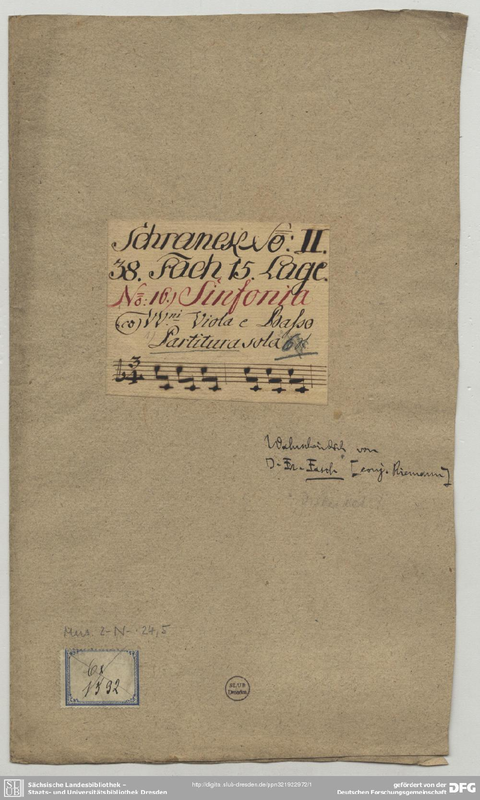 Schranck No: II.
38. Fach 15. Lage.
No: 16.) Sinfonia
(co) VV.ni Viola e Basso
Partitura sola
3
4
Wahrscheinlich von
J. Fr. Fasch [conj. Riemann]
Mus. 2-N-24,5
Cx
1392
SLUB
Dresden
SLUB
Sächsische Landesbibliothek –
Staats- und Universitätsbibliothek Dresden
http://digital.slub-dresden.de/ppn321922972/1
gefördert von der
Deutschen Forschungsgemeinschaft
DFG